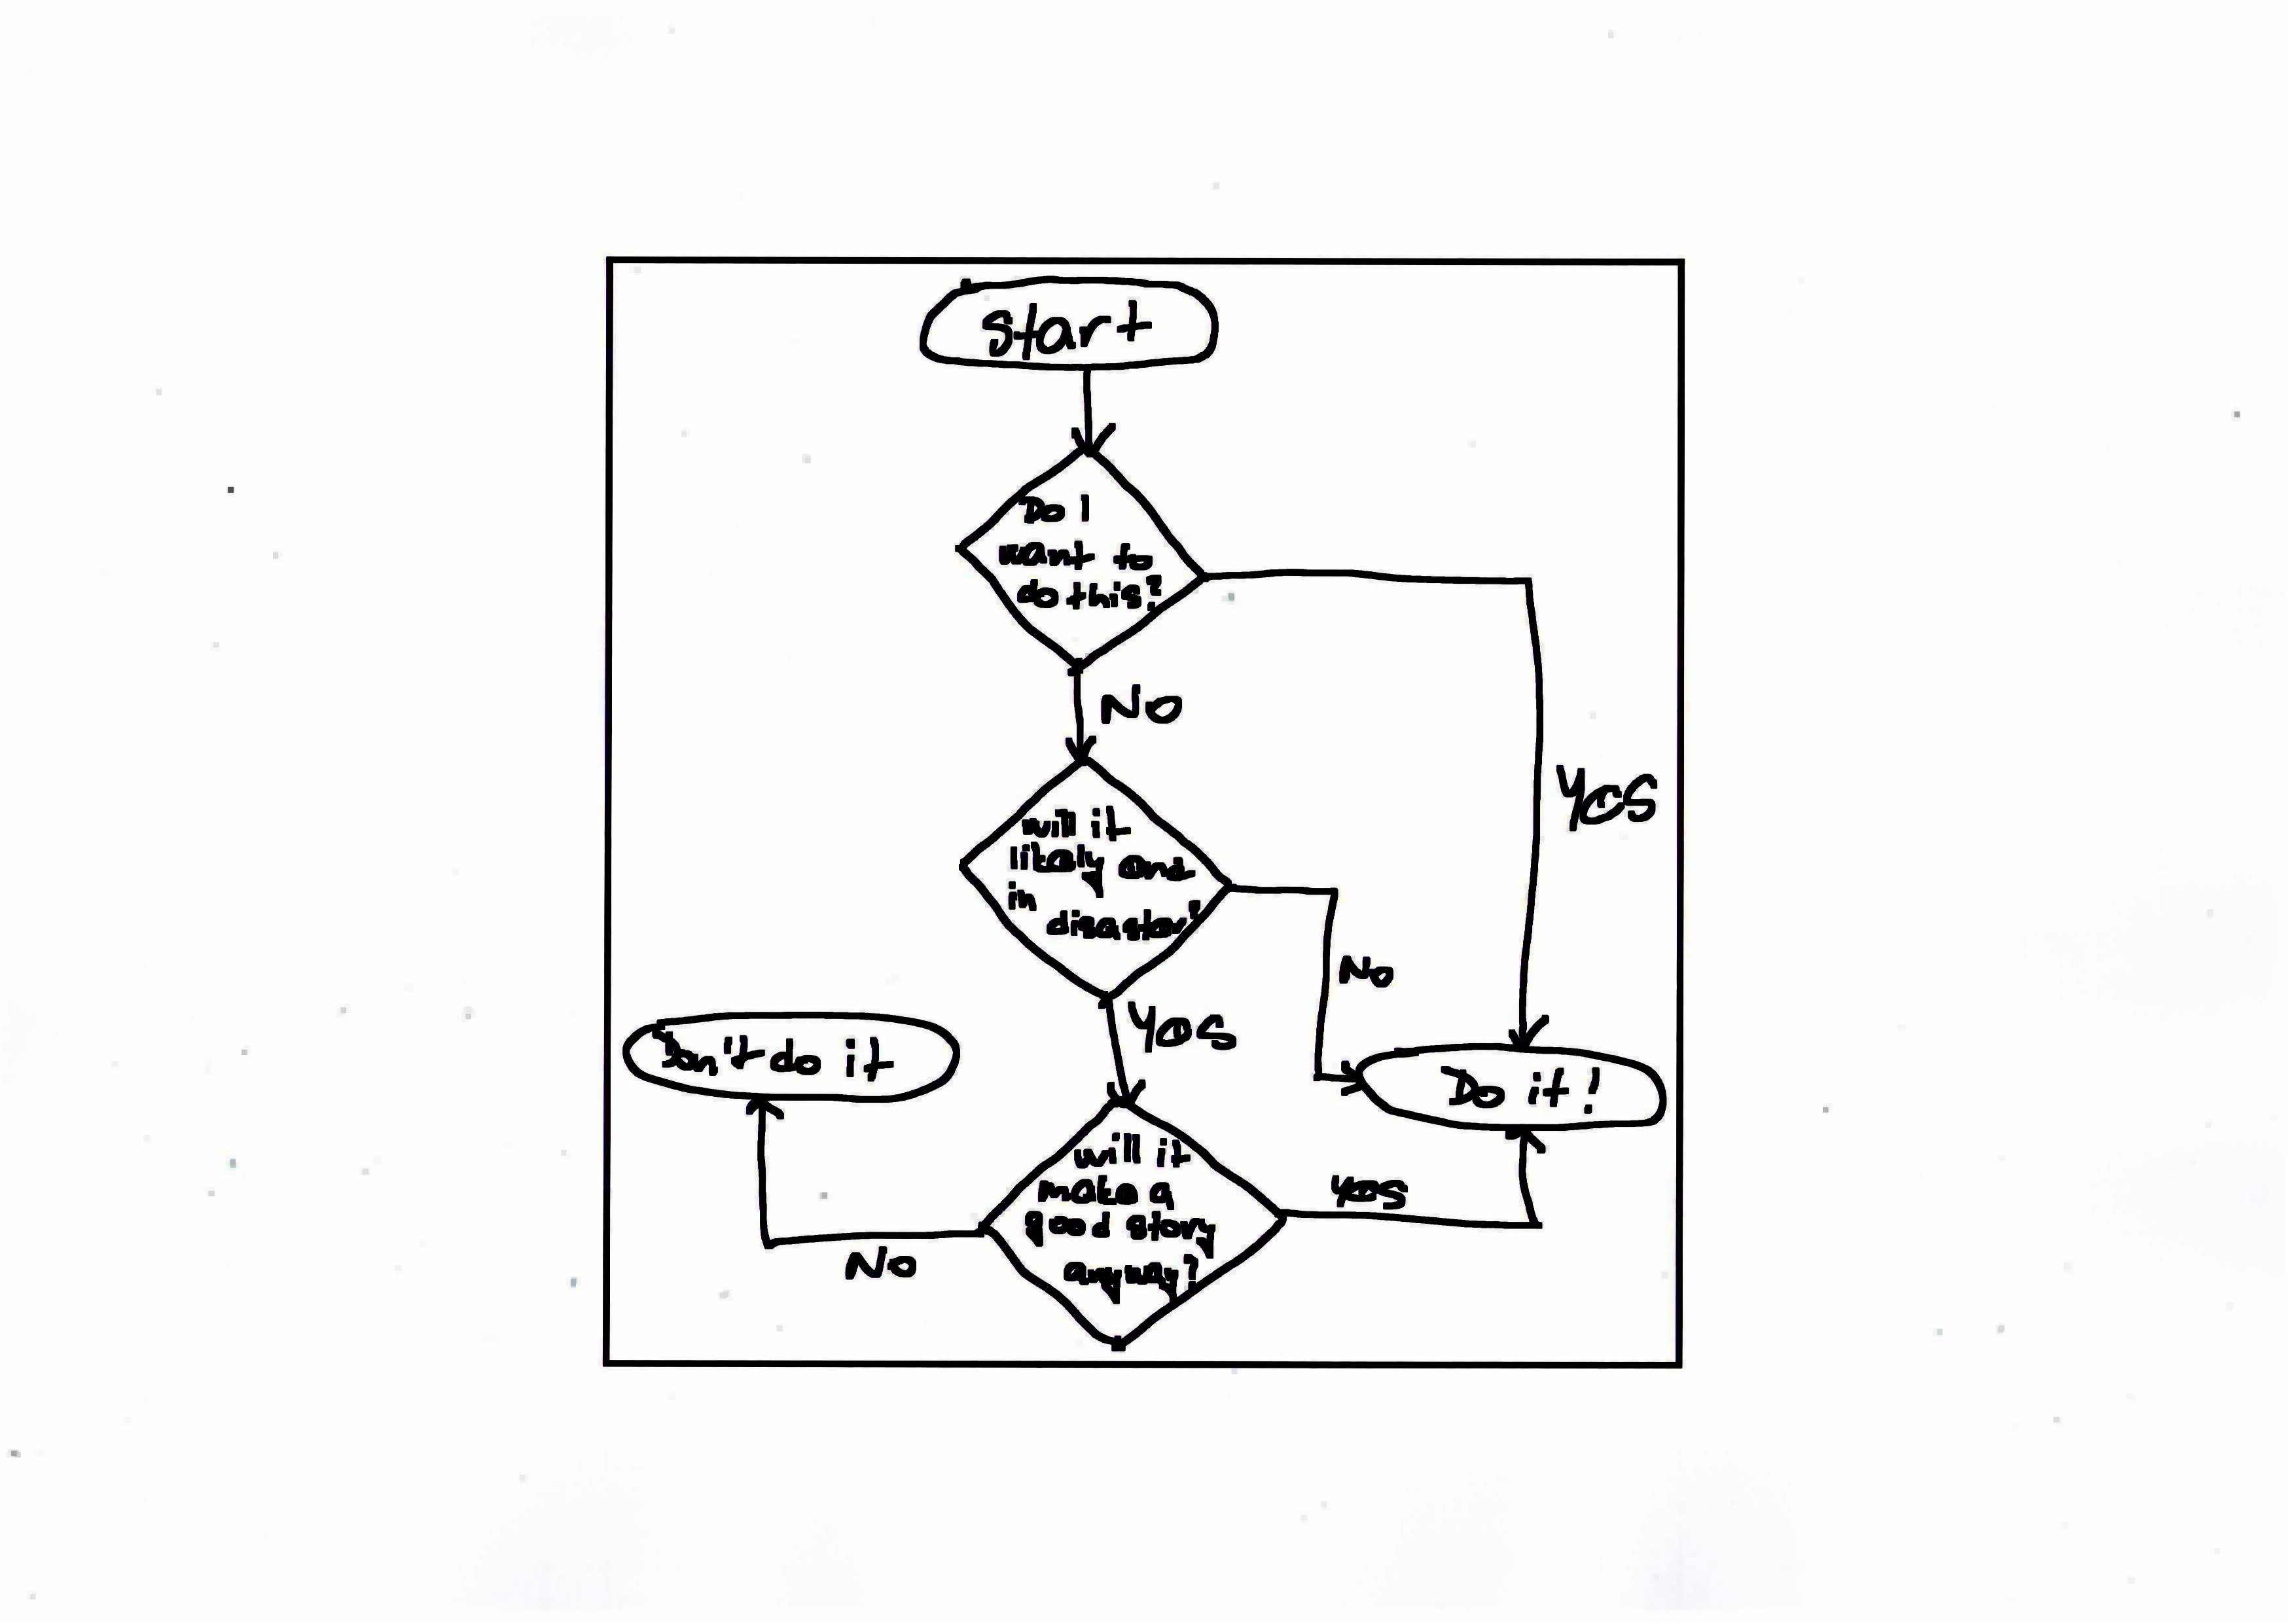 start
Do I
want to
do this?
No
Yes
will it
likely end
in
disaster?
No
Yes
Don't do it
Do it!
will it
make a
good story
anyway?
Yes
No